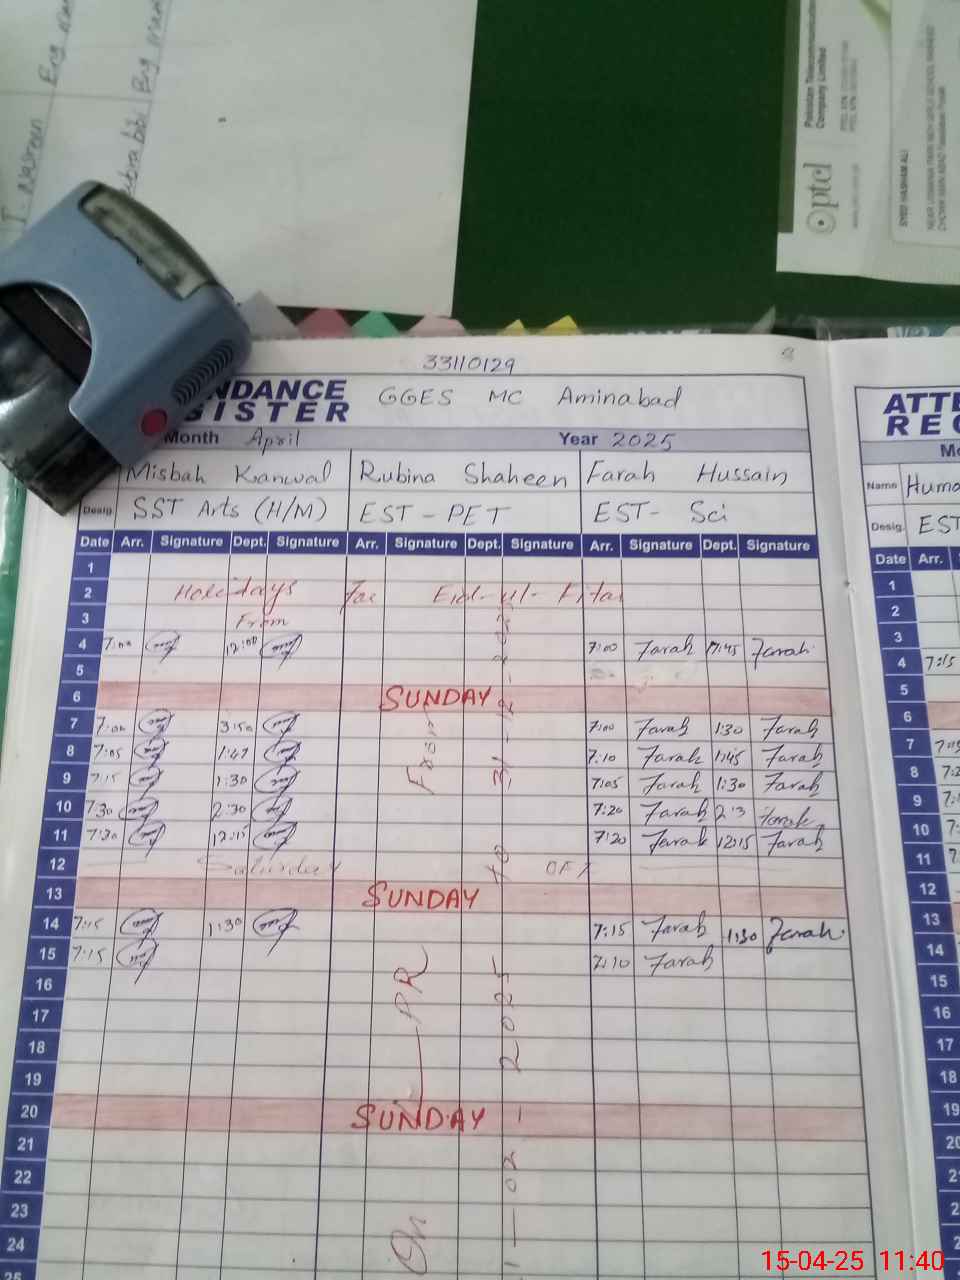 I. Nasreen Eng
Eng
Pakistan Telecommunication
Company Limited
ptcl
SYED HASHAM ALI
33110129
8
NDANCE
ISTER
GGES MC Aminabad
Month April Year 2025
Misbah Kanwal Rubina Shaheen Farah Hussain
Desig. SST Arts (H/M) EST - PET EST - Sci
Date Arr. Signature Dept. Signature Arr. Signature Dept. Signature Arr. Signature Dept. Signature
1
2 Holidays For Eid-ul-Fitar
3 From
4 7:00 12:00 7:00 Farah Farah
5
6 SUNDAY
7 7:00 3:50 7:00 Farah 1:30 Farah
8 7:05 1:47 7:10 Farah 1:45 Farah
9 7:15 1:30 7:05 Farah 1:30 Farah
10 7:30 2:30 7:20 Farah Farah
11 7:20 12:15 7:20 Farah 12:15 Farah
12 Saturday OFF
13 SUNDAY
14 7:15 1:30 7:15 Farah 1:30 Farah
15 7:15 7:10 Farah
16
17
18
19
20 SUNDAY
21
22
23
24
25
On PR From
02 - 2025 to 31-12-
ATTE
RE
Name Huma
Desig. EST
Date Arr.
1
2
3
4 7:15
5
6
7
8
9
10
11
12
13
14
15
16
17
18
19
15-04-25 11:40